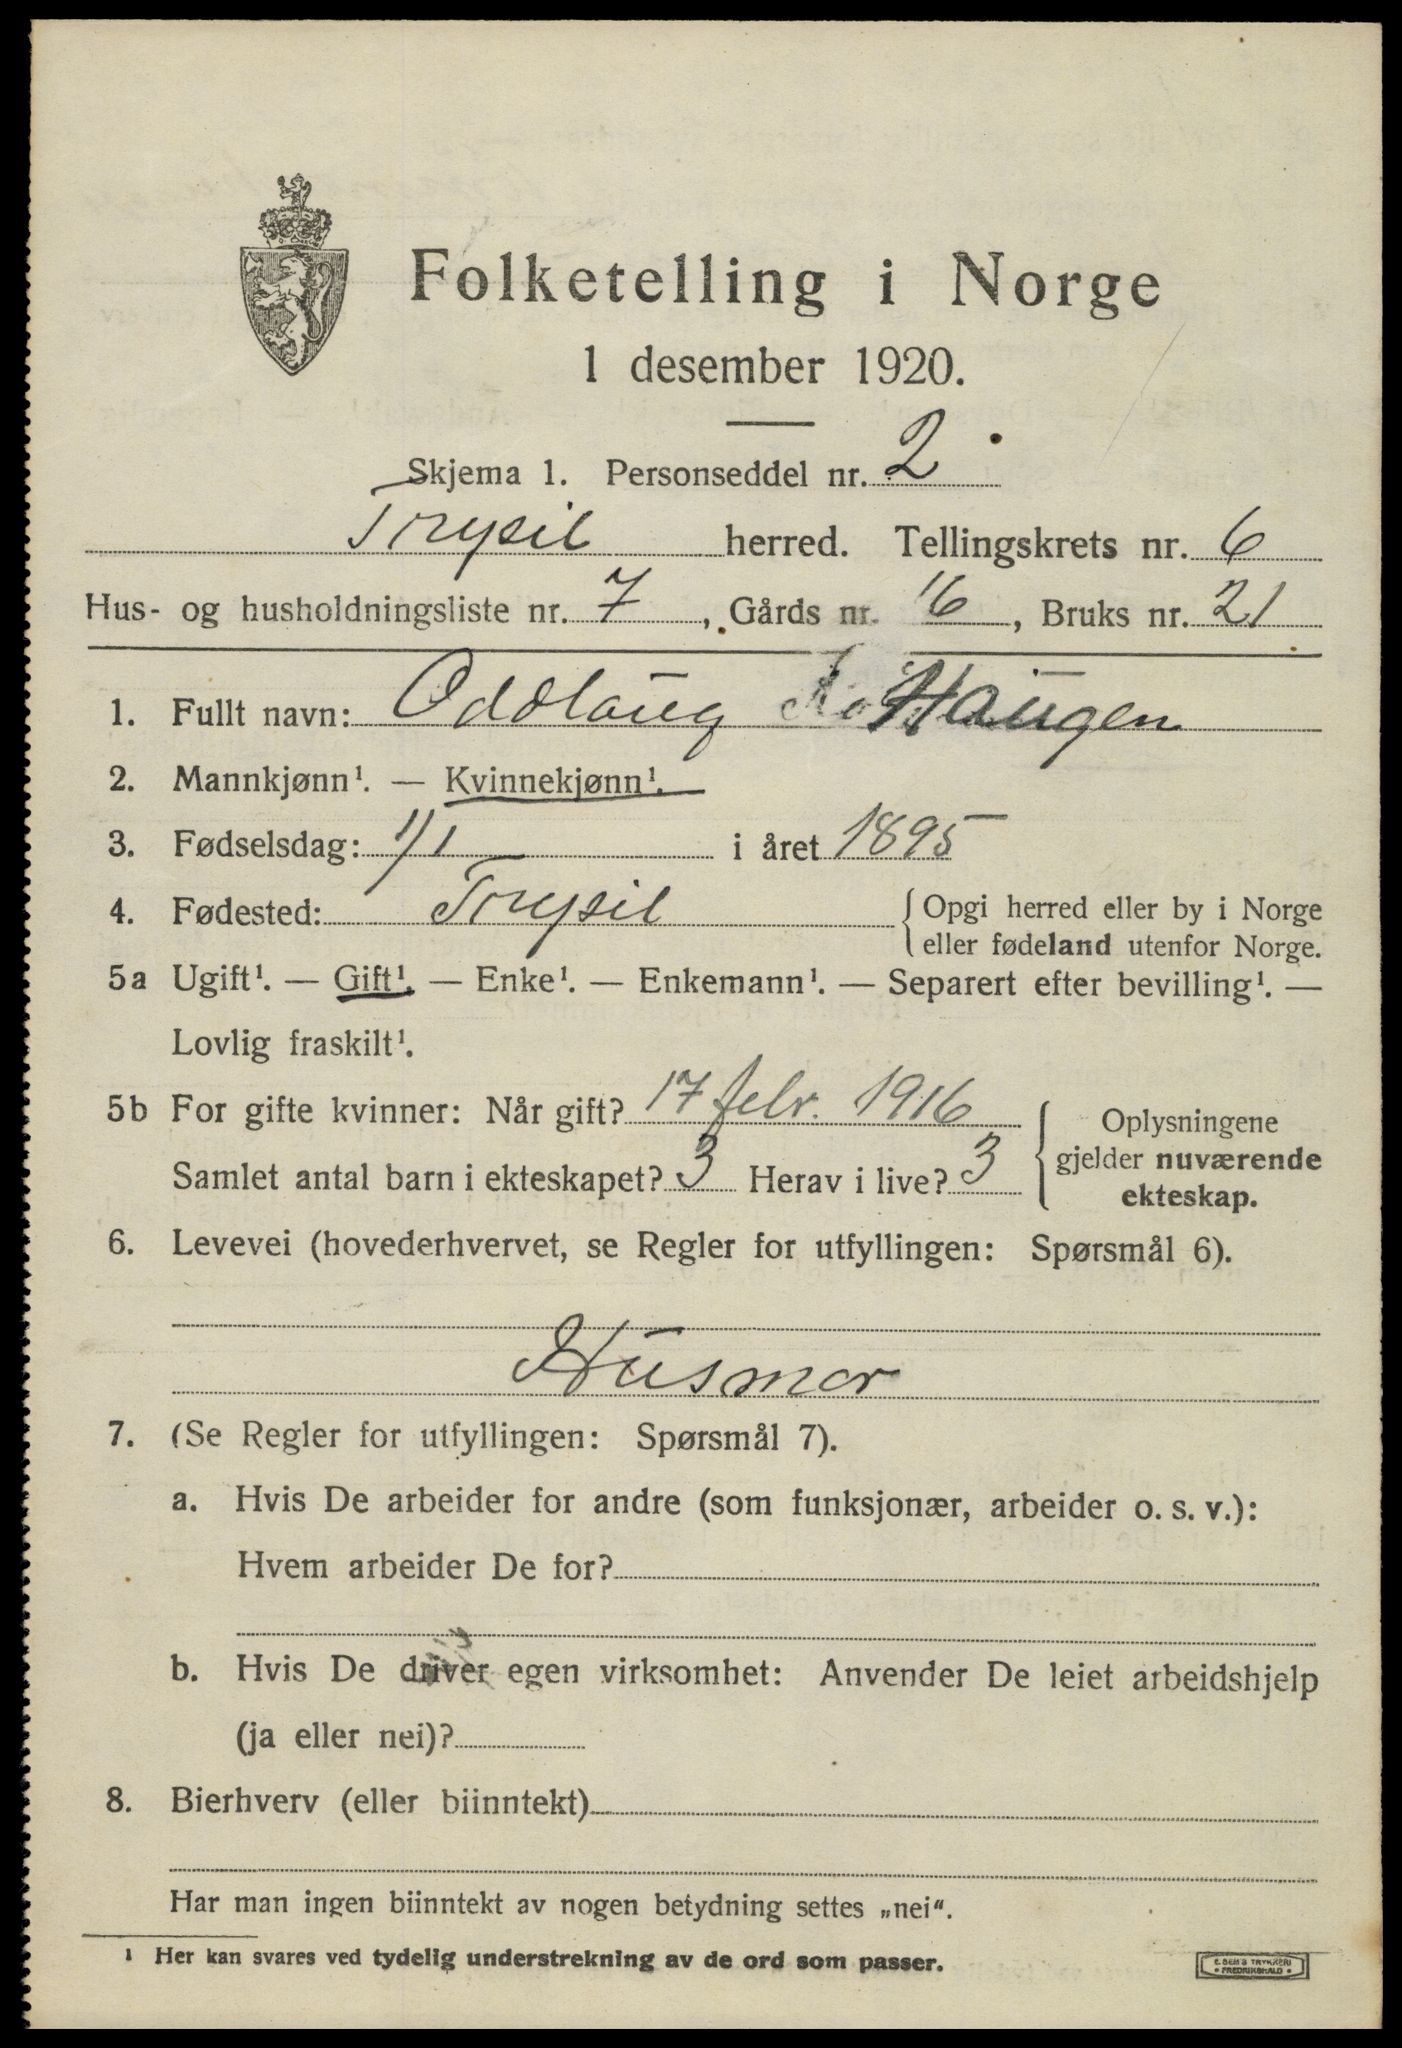 Folketelling i Norge
1 desember 1920.
Skjema 1. Personseddel nr. 2
Trysil herred. Tellingskrets nr. 6
Hus- og husholdningsliste nr. 7, Gårds nr. 16, Bruks nr. 21
1. Fullt navn: Oddlaug Haugen
2. Mannkjønn¹. — Kvinnekjønn¹.
3. Fødselsdag: 1/1 i året 1895
4. Fødested: Trysil { Opgi herred eller by i Norge
eller fødeland utenfor Norge.
5a Ugift¹. — Gift¹. — Enke¹. — Enkemann¹. — Separert efter bevilling¹. —
Lovlig fraskilt¹.
5b For gifte kvinner: Når gift? 17 febr. 1916
Samlet antal barn i ekteskapet? 3 Herav i live? 3
{ Oplysningene
gjelder nuværende
ekteskap.
6. Levevei (hovederhvervet, se Regler for utfyllingen: Spørsmål 6).
Husmor
7. (Se Regler for utfyllingen: Spørsmål 7).
a. Hvis De arbeider for andre (som funksjonær, arbeider o. s. v.):
Hvem arbeider De for?
b. Hvis De driver egen virksomhet: Anvender De leiet arbeidshjelp
(ja eller nei)?
8. Bierhverv (eller biinntekt)
Har man ingen biinntekt av nogen betydning settes „nei“.
¹ Her kan svares ved tydelig understrekning av de ord som passer.
E. SEM'S TRYKKERI
• FREDRIKSHALD •